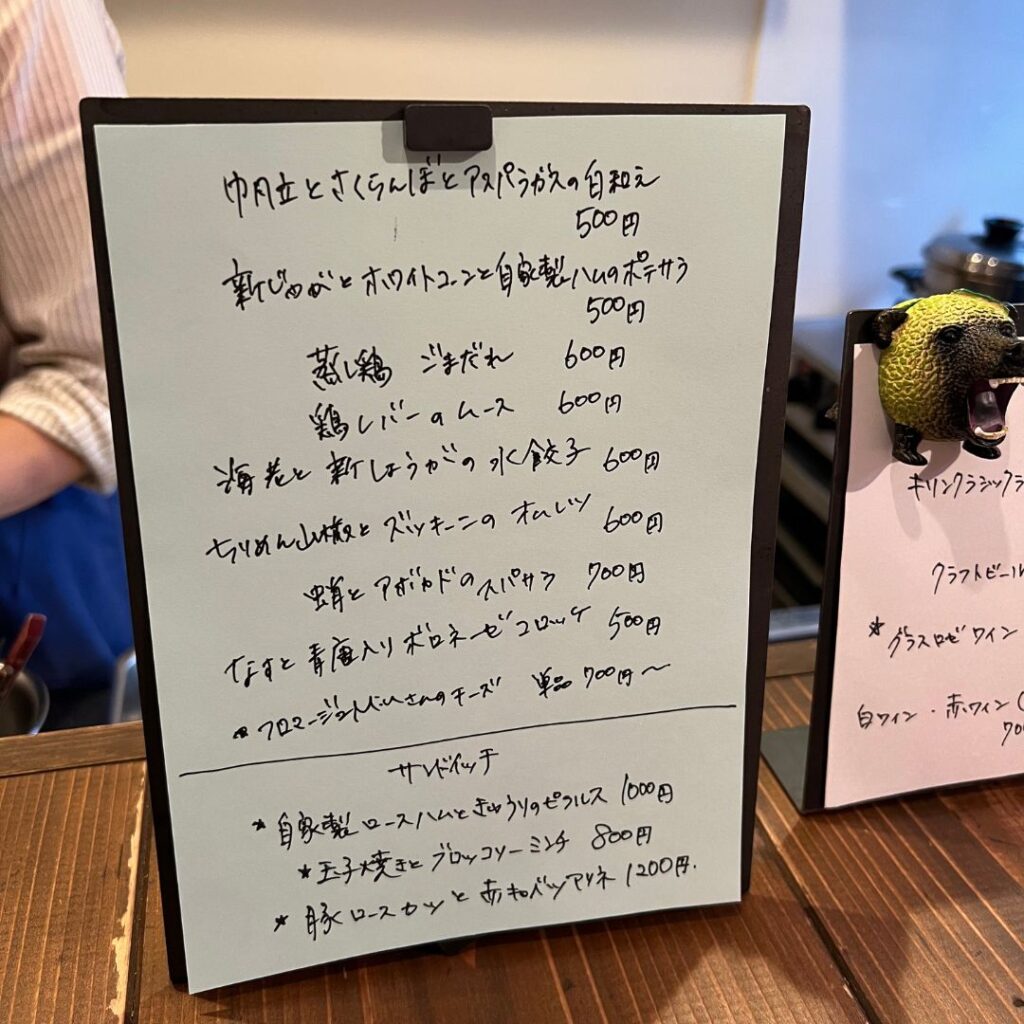 帆立とさくらんぼとアスパラガスの白和え
500円
新じゃがとホワイトコーンと自家製ハムのポテサラ
500円
蒸し鶏 ごまだれ 600円
鶏レバーのムース 600円
海老と新しょうがの水餃子 600円
ちりめん山椒とズッキーニのオムレツ 600円
蛸とアボカドのスパサラ 700円
なすと青唐入りボロネーゼコロッケ 500円
フロマージュ さんのチーズ 単品 700円〜
サンドイッチ
* 自家製ロースハムときゅうりのピクルス 1000円
* 玉子焼きとブロッコリーミンチ 800円
* 豚ロースカツと赤キャベツマリネ 1200円.
キリンクラシックラ
クラフトビール
* グラスロゼワイン
白ワイン・赤ワイン(
700